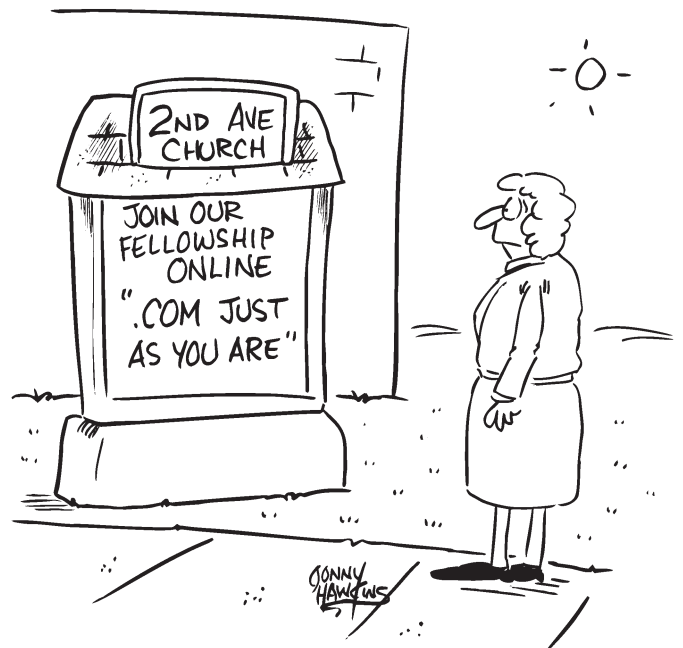 2ND AVE
CHURCH
JOIN OUR
FELLOWSHIP
ONLINE
".COM JUST
AS YOU ARE"
JONNY
HAWKINS